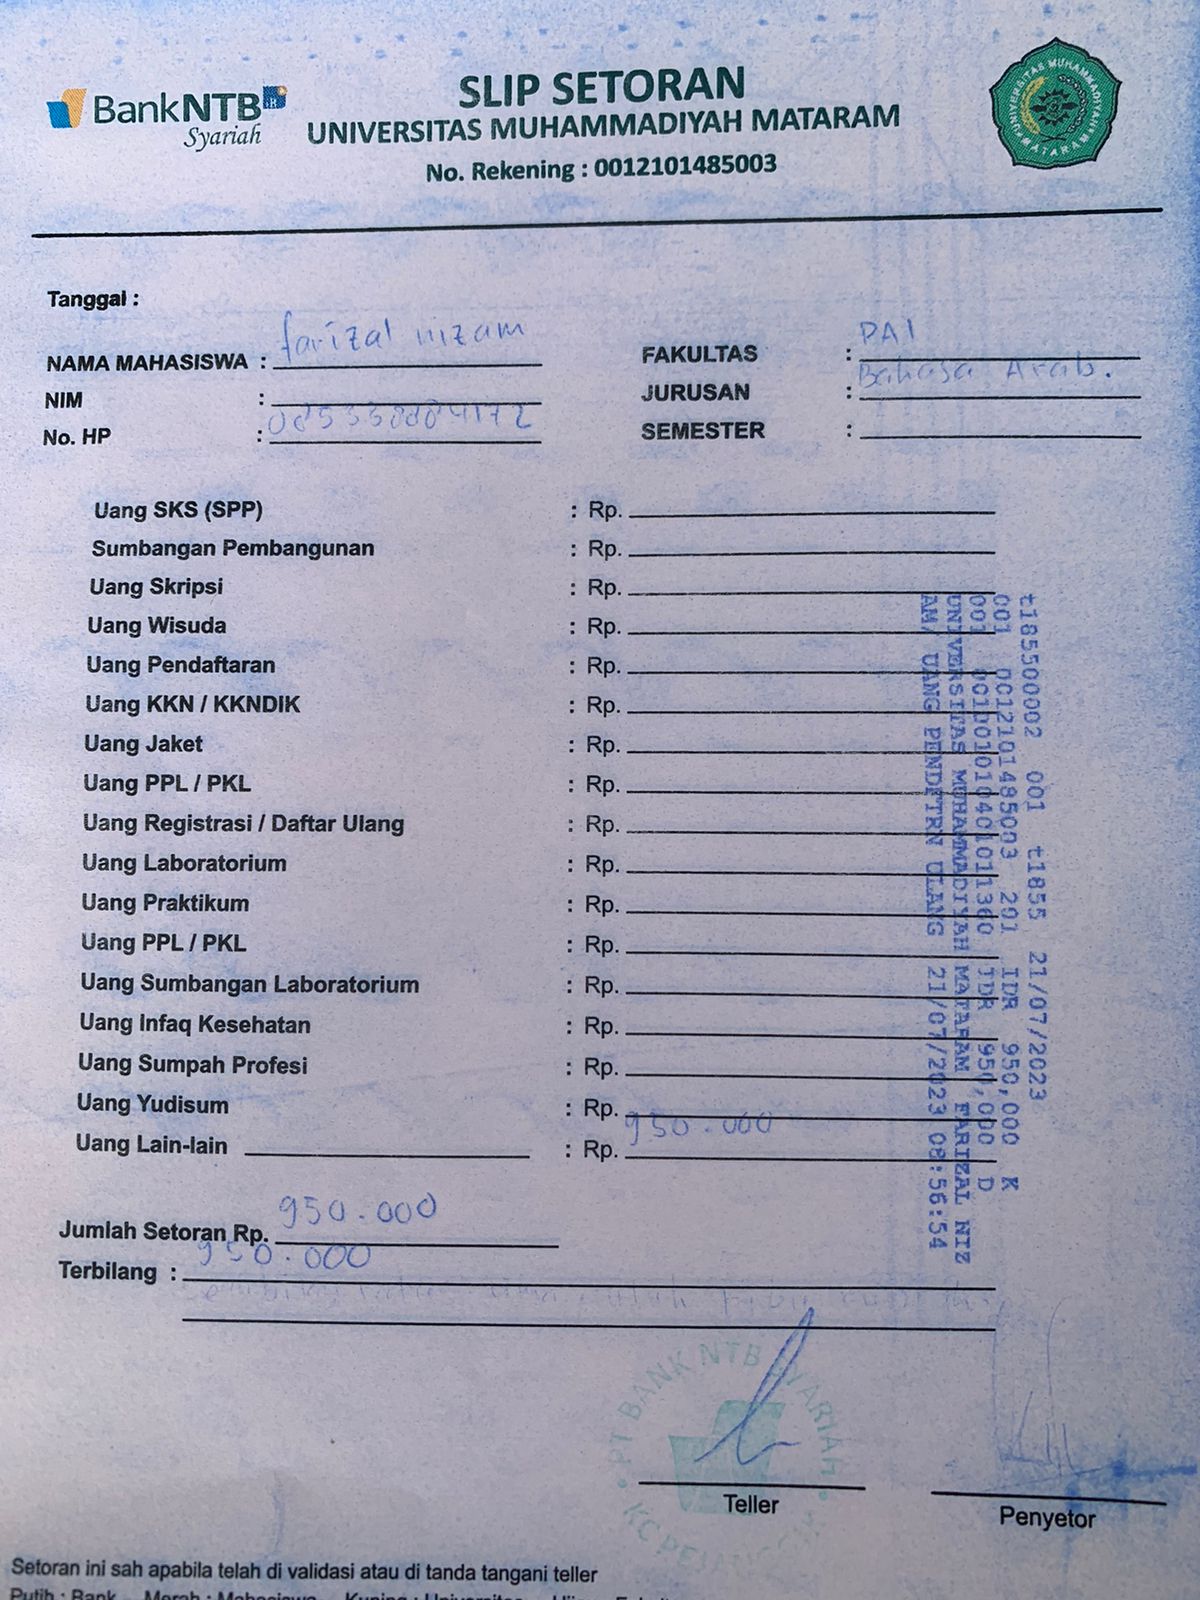 BankNTB
Syariah
SLIP SETORAN
UNIVERSITAS MUHAMMADIYAH MATARAM
No. Rekening : 0012101485003
UNIVERSITAS MUHAMMADIYAH MATARAM
Tanggal :
NAMA MAHASISWA : farizal nizam
NIM :
No. HP :
FAKULTAS : PAI
JURUSAN : Bahasa Arab.
SEMESTER :
Uang SKS (SPP) : Rp.
Sumbangan Pembangunan : Rp.
Uang Skripsi : Rp.
Uang Wisuda : Rp.
Uang Pendaftaran : Rp.
Uang KKN / KKNDIK : Rp.
Uang Jaket : Rp.
Uang PPL / PKL : Rp.
Uang Registrasi / Daftar Ulang : Rp.
Uang Laboratorium : Rp.
Uang Praktikum : Rp.
Uang PPL / PKL : Rp.
Uang Sumbangan Laboratorium : Rp.
Uang Infaq Kesehatan : Rp.
Uang Sumpah Profesi : Rp.
Uang Yudisum : Rp.
Uang Lain-lain : Rp. 950.000
t18550002 001 t1855 21/07/2023
001 0012101485003 201 IDR 950,000 K
001 00101010401011360 IDR 950,000 D
UNIVERSITAS MUHAMMADIYAH MATARAM FARIZAL NIZ
AM/ UANG PENDFTRN ULANG 21/07/2023 08:56:54
Jumlah Setoran Rp. 950.000
Terbilang : 950.000
PT BANK NTB SYARIAH
KC
Teller
Penyetor
Setoran ini sah apabila telah di validasi atau di tanda tangani teller
Putih : Bank Merah : Mahasiswa Kuning : Universitas